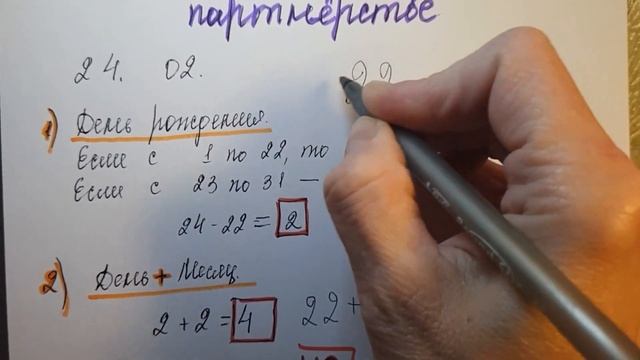 партнёрстве
24. 02. 22
1) День рождения.
Если с 1 по 22, то
Если с 23 по 31 —
24-22 = 2
2) День + Месяц.
2 + 2 = 4 22 +